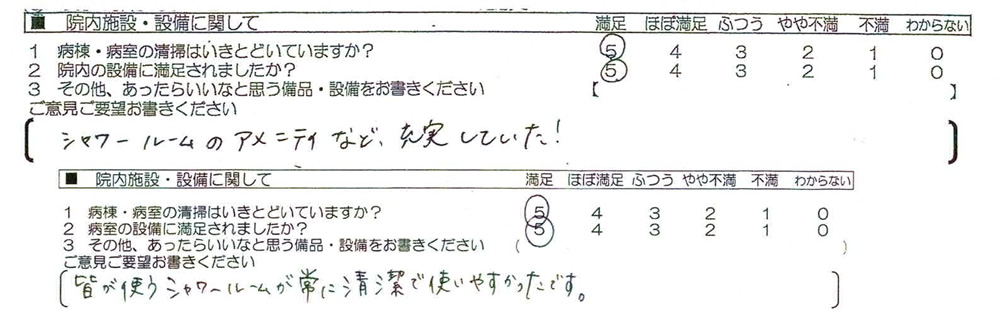 ■ 院内施設・設備に関して 満足 ほぼ満足 ふつう やや不満 不満 わからない
1 病棟・病室の清掃はいきとどいていますか? 5 4 3 2 1 0
2 院内の設備に満足されましたか? 5 4 3 2 1 0
3 その他、あったらいいなと思う備品・設備をお書きください 【 】
ご意見ご要望お書きください
シャワールームのアメニティなど、充実していた!
■ 院内施設・設備に関して 満足 ほぼ満足 ふつう やや不満 不満 わからない
1 病棟・病室の清掃はいきとどいていますか? 5 4 3 2 1 0
2 病室の設備に満足されましたか? 5 4 3 2 1 0
3 その他、あったらいいなと思う備品・設備をお書きください ( )
ご意見ご要望お書きください
皆が使うシャワールームが常に清潔で使いやすかったです。